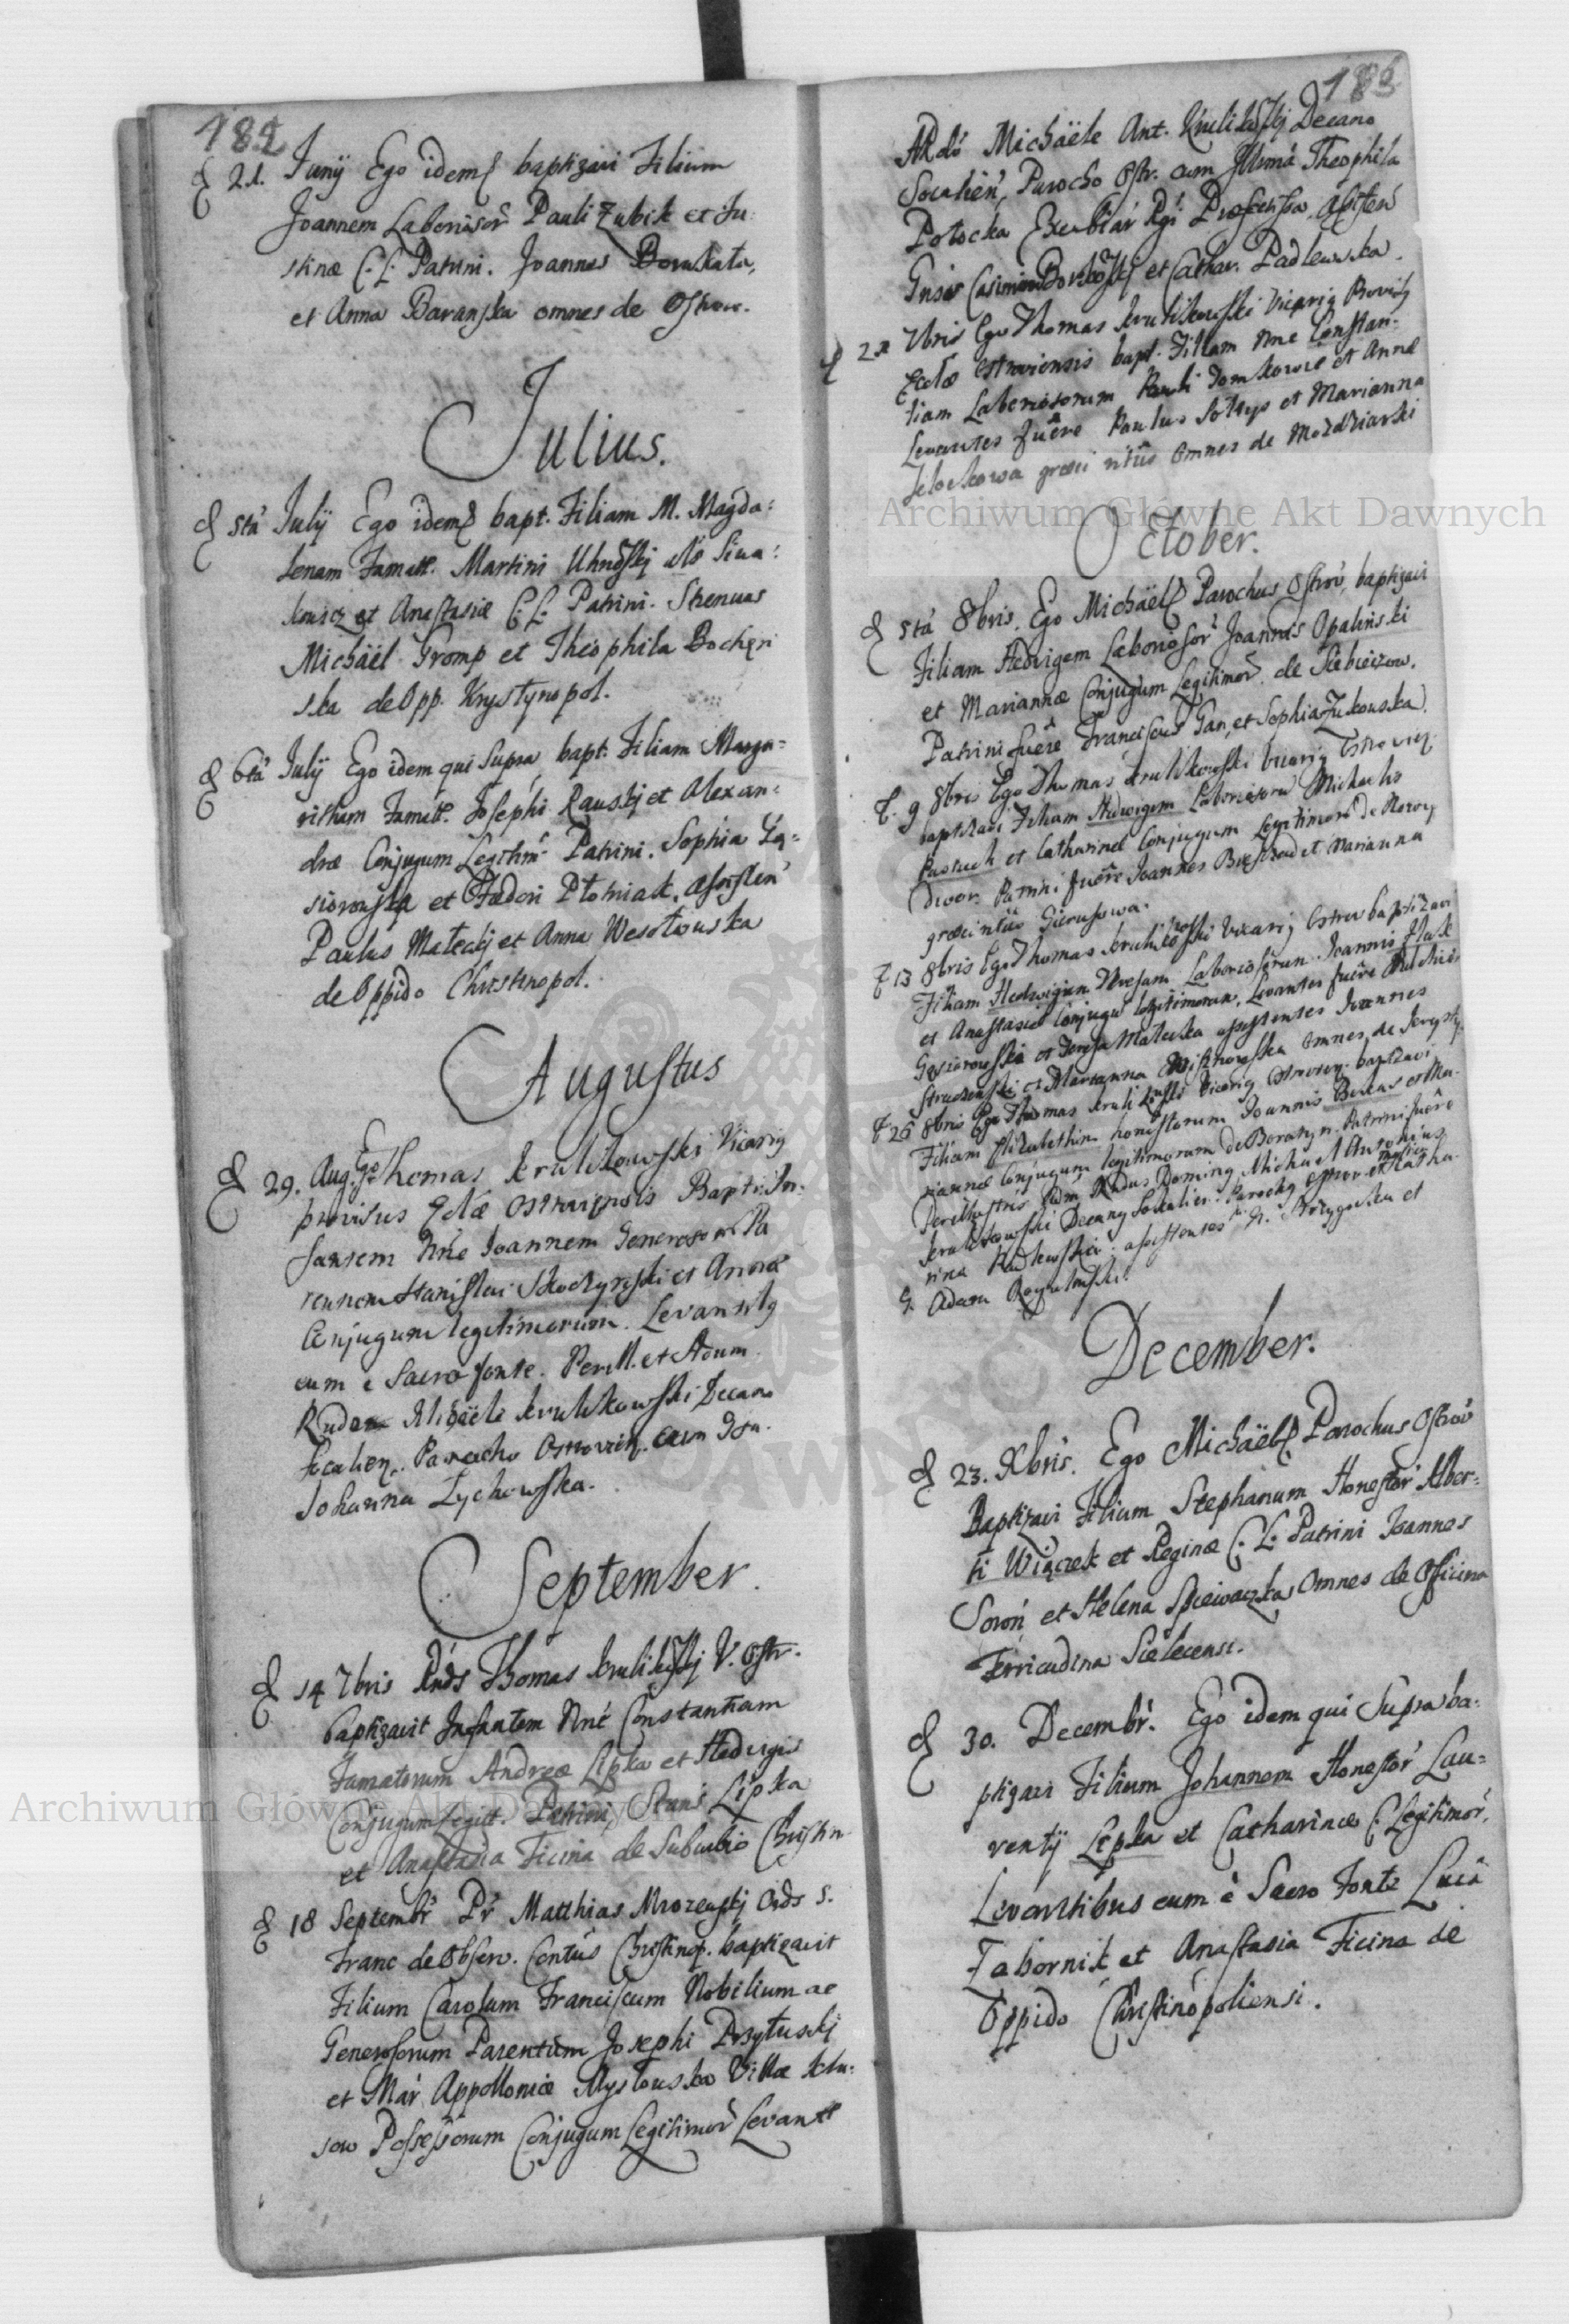 182
21. Junij Ego idem baptizavi Filium
Joannem Laboriosor Pauli Zubik et Ju-
stinæ C. L. Patrini. Joannes
et Anna Baranska omnes de Ostrow.
Julius.
5tâ Julij Ego idem bapt. Filiam M. Magda=
lenam Famatt. Martini als Siwa=
kowicz et Anastasiæ C. L. Patrini. Strenuus
Michäel Tromp et Theophila
ska de Opp. Krystynopol.
6tâ Julij Ego idem qui Supra bapt. Filiam Marga=
ritham Famatt. Josephi Rauskj et Alexan=
dræ Conjugum Legitim. Patrini. Sophia Gą=
siorowska et Fedori Płotniak. assisten
Paulus Małeckj et Anna Wesołowska
de Oppido Christinopol.
Augustus
29. Aug. Ego Thomas Krulikowski Vicarig
provisus Eclæ Ostroviensis Bapt. In-
fantem Nne Joannem Generosorum Pa
rentum Stanislai Skoczynski et Annæ
Conjugum legitimorum. Levantibg
eum e Sacro fonte. Perill. et Adum.
Rudum Michäele Krulikowski Decano
Socalien. Parocho Ostrovien. cum Gsa.
Johanna Łychowska.
September.
14 7bris Rnds Thomas V. Ostr.
baptizavit Infantem Nne Constantiam
Famatorum Andreæ Lipka et Hedvigis
Conjugum Legitt. Patrini, Stanis Lipka
et Anastasia Ficina de Suburbio Christin.
18 Septembr Pr Matthias Mrozenskj Ords S.
Franc de Observ. Contus Christinop. baptizavit
Filium Carolum Franciscum Nobilium ac
Generosorum Parentum Josephi Przytuskj
et Mar Appolloniæ Mysłouska Villæ Klu-
sow Possessorum Conjugum Legitimor Levante
183
ARdo Michäele Ant. Decano
Socalien, Parocho Ostr. cum Illma Theophila
Potocka Rgi Assisten
Gnser Casimiro et Cathar. Padlewska.
21 7bris Ego Thomas Krulikowski Vicarig Provisg
Ecclæ Ostroviensis bapt. Filiam Nne Constan=
tiam Laboriosorum Pauli Domkowie et Annæ
Levantes fuêre Paulus Sołtys et Marianna
græci ritûs Omnes de Mozdziarki
October.
5tâ 8bris. Ego Michäel Parochus Ostrov, baptizavi
Filiam Hedvigem Laboriosor Joannis Opalinski
et Mariannæ Conjugum Legitimor. de
Patrini fuêre Franciscus Gan, et Sophia Zukouska.
9 8bris Ego Thomas Krulikowski Vicarig Ostrovien.
baptizavi Filiam Hedwigem Laboriosoru Michaelis
Pastuch et Catharinæ Conjugum Legitimoru de Nowy
dwor. Patrini fuêre Joannes et Marianna
græci ritûs
13 8bris Ego Thomas Krulikowski Vicarig Ostrov baptizavi
Filiam Hedwigem Theresam Laboriosorum Joannis Hak
et Anastasiæ Conjugu legitimorum, Levantes fuêre
Gąsiorowski et Teresa Małecka assistentes Joannes
et Marianna Omnes de Krysty.
26 8bris Ego Thomas Krulikowski Vicarig Ostrovien. baptizavi
Filiam Elizabetham honestorum Joannis et Ma-
riannæ Conjugum legitimorum de Boratyn. Patrini fuêre
Perillustris Rndus Doming Michael Antonius
Krulikowski Decang Socalien. Parochg Ostrov. et Katha-
rina assistentes et
G. Adam
December.
23. Xbris. Ego Michäel Parochus Ostrov
Baptizavi Filium Stephanum Honestor Alber=
ti Wiączek et Reginæ C. L. Patrini Joannes
Soroń et Helena Spiewaczka Omnes de Officina
Ferricudina
30. Decembr. Ego idem qui Supra ba-
ptizavi Filium Johannem Honestor Lau=
rentij Lipka et Catharinæ C. Legitimor.
Levantibus eum è Sacro Fonte Lucâ
Tabornik et Anastasia Ficina de
Oppido Christinopoliensi.
Archiwum Główne Akt Dawnych
Archiwum Główne Akt Dawnych